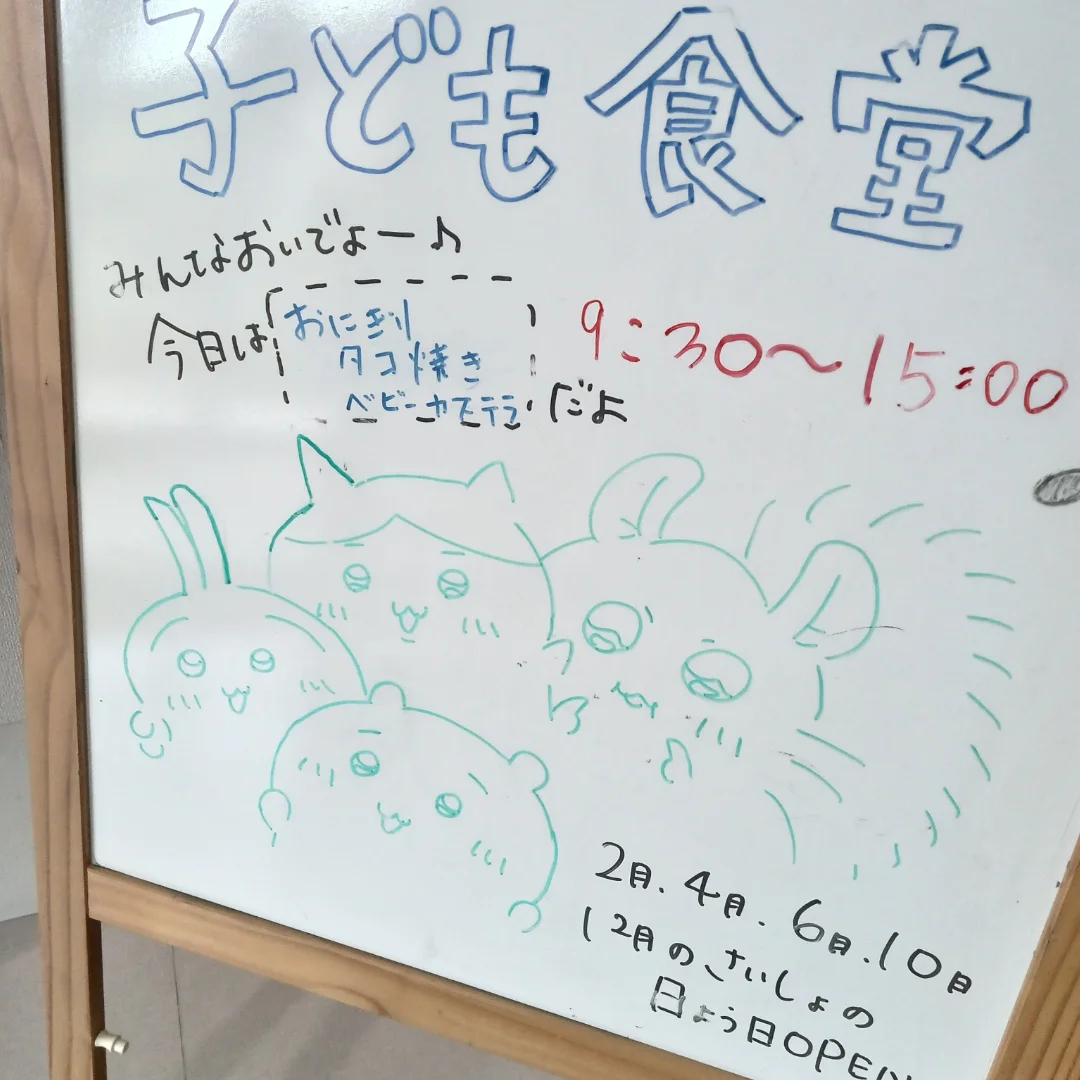 子ども食堂
みんなおいでよー♪
今日は おにぎり
タコ焼き
ベビーカステラ だよ
9:30〜15:00
2月.4月.6月.10月
12月のさいしょの
日よう日OPEN